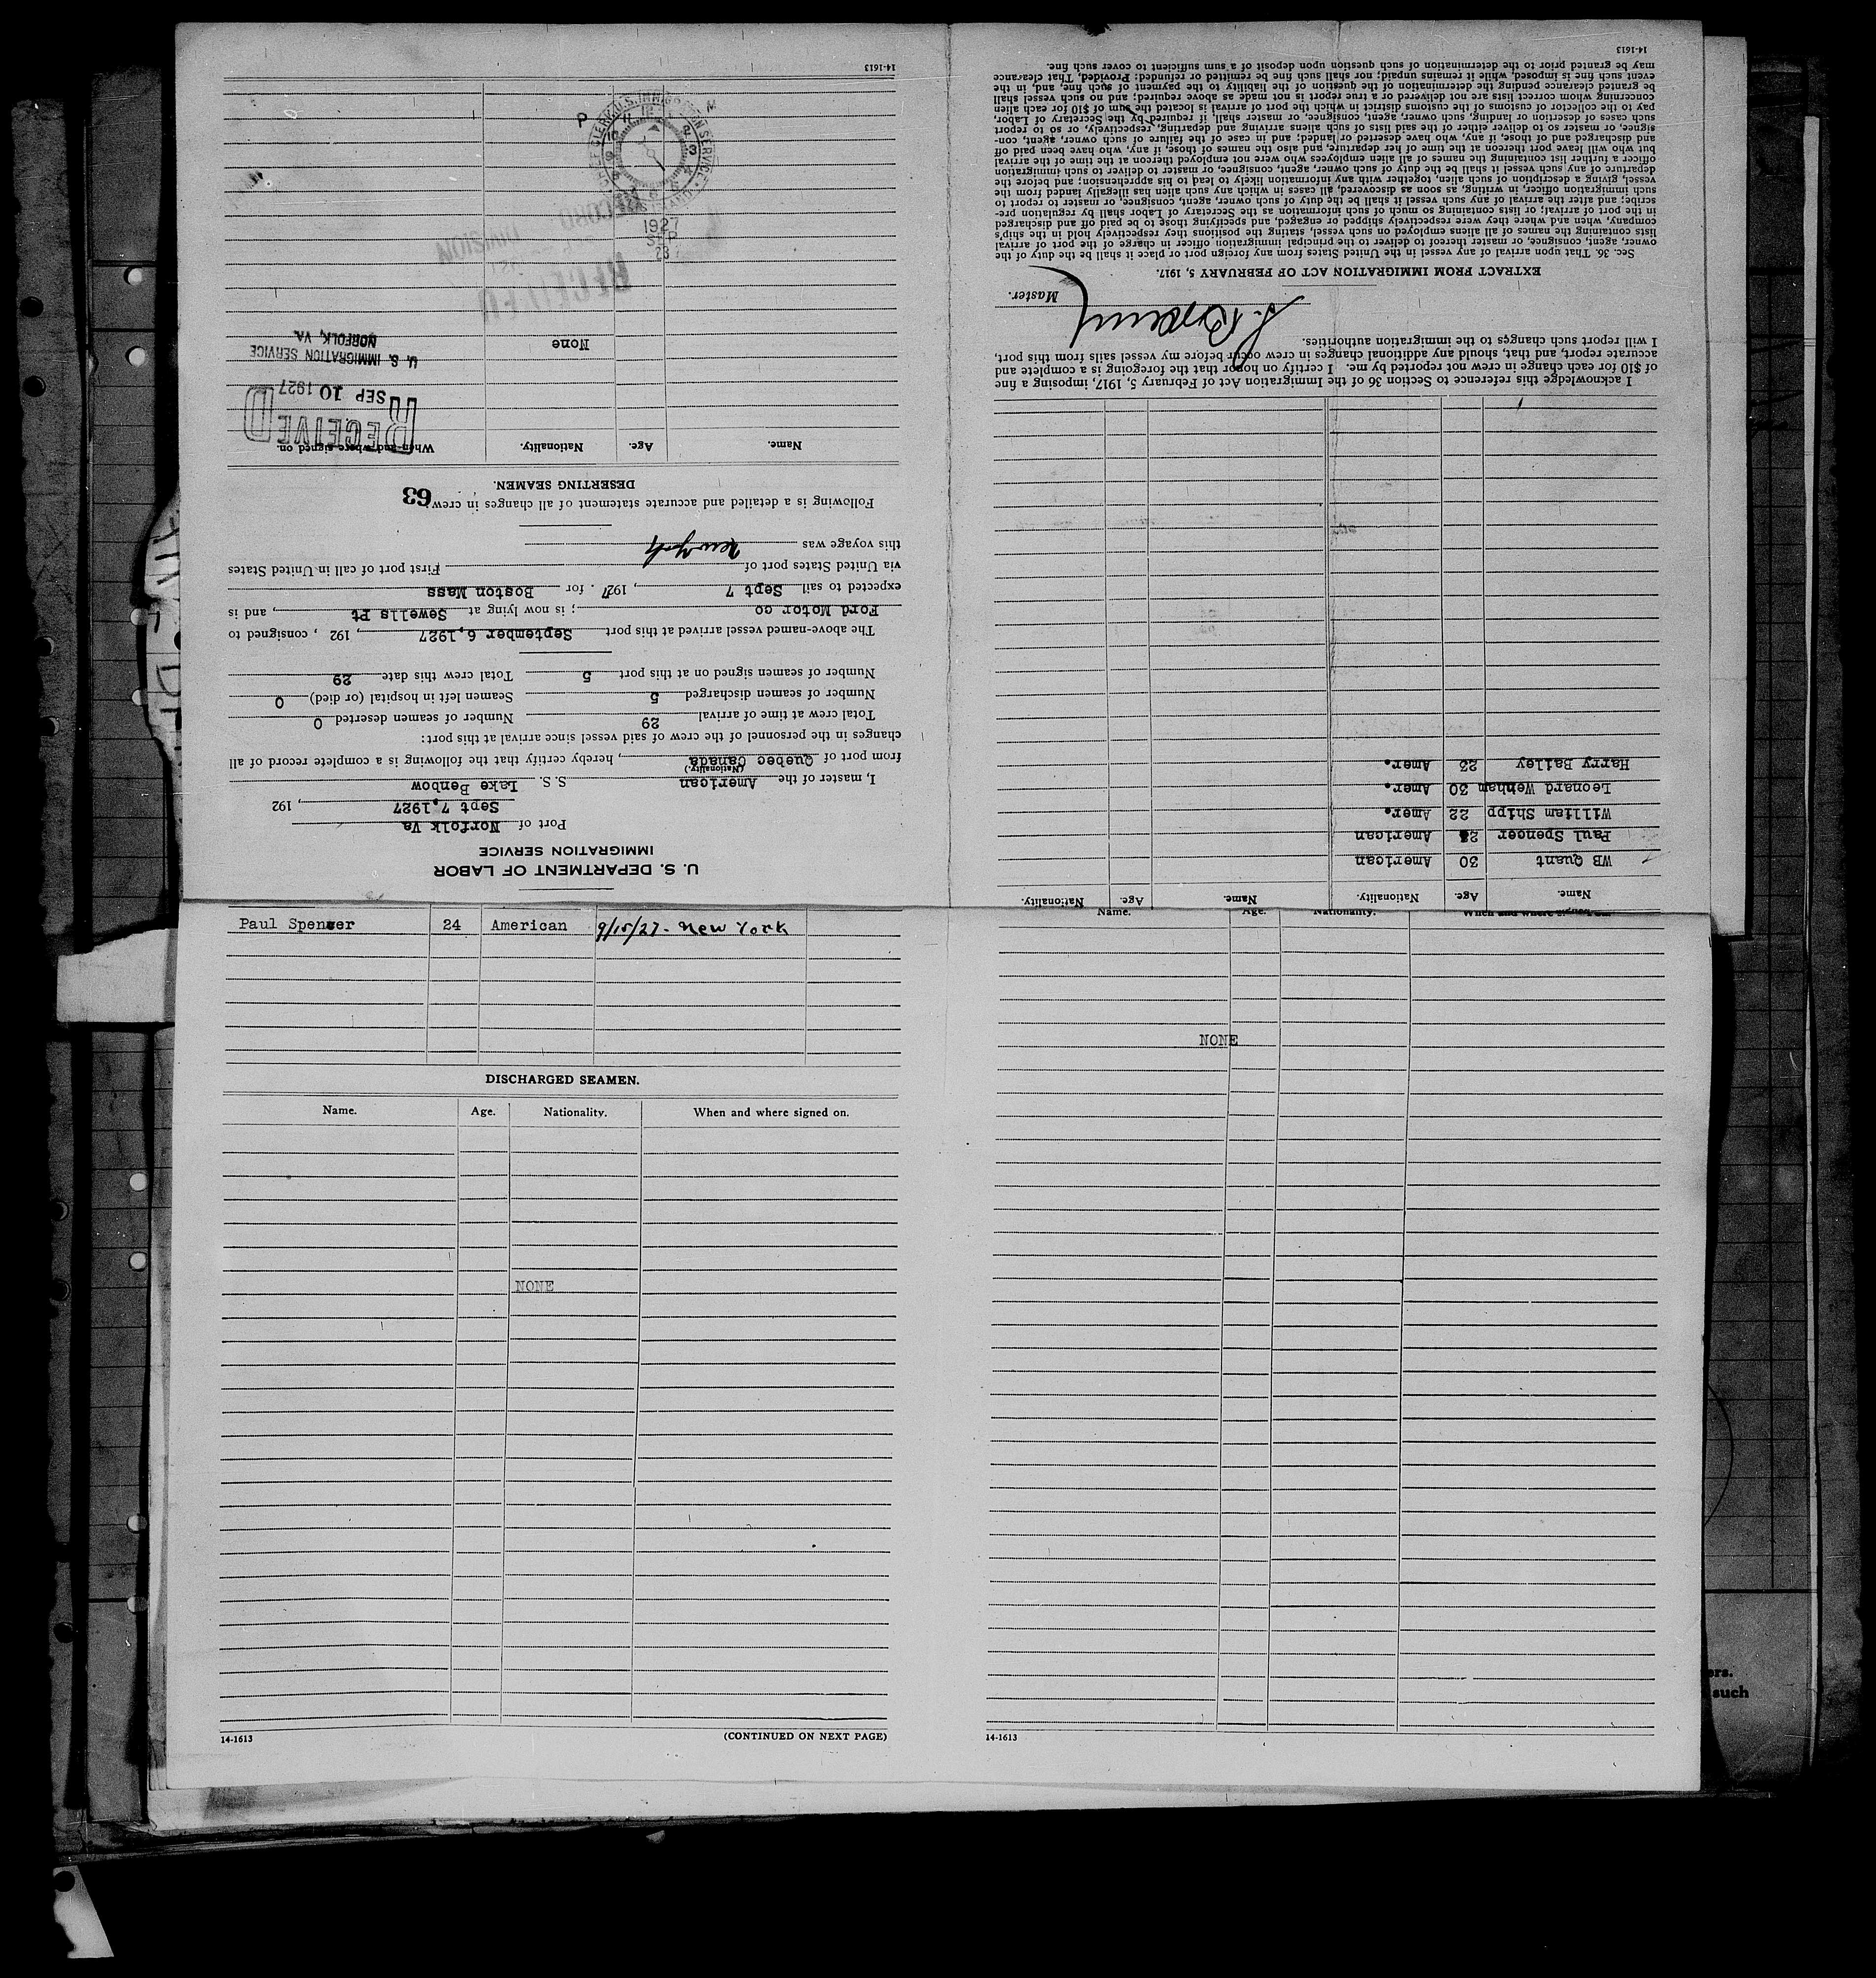 U. S. DEPARTMENT OF LABOR
IMMIGRATION SERVICE
Port of Norfolk Va
Sept 7,1927, 192
I, master of the American S. S. Lake Benbow
(Nationality.)
from port of Quebec Canada, hereby certify that the following is a complete record of all
changes in the personnel of the crew of said vessel since arrival at this port:
Total crew at time of arrival 29 Number of seamen deserted 0
Number of seamen discharged 5 Seamen left in hospital (or died) 0
Number of seamen signed on at this port 5 Total crew this date 29
The above-named vessel arrived at this port September 6,1927, 192 , consigned to
Ford Motor co; is now lying at Sewells Pt, and is
expected to sail Sept 7, 1927. for Boston Mass
via United States port of First port of call in United States
this voyage was New York
Following is a detailed and accurate statement of all changes in crew: 63
DESERTING SEAMEN.
Name. Age. Nationality. When and where signed on.
RECEIVED
SEP 10 1927
U. S. IMMIGRATION SERVICE
NORFOLK, VA.
None
RECEIVED
RECORD
DIVISION
1927
SEP
23
14-1613
Name. Age. Nationality. Name. Age. Nationality.
WB Quant 30 American
Paul Spencer American
William Shipp 22 Amer.
Leonard Wenham 30 Amer.
Harry Bailey 23 Amer.
I acknowledge this reference to Section 36 of the Immigration Act of February 5, 1917, imposing a fine
of $10 for each change in crew not reported by me. I certify on honor that the foregoing is a complete and
accurate report, and that, should any additional changes in crew occur before my vessel sails from this port,
I will report such changes to the immigration authorities.
Master.
EXTRACT FROM IMMIGRATION ACT OF FEBRUARY 5, 1917.
Sec. 36. That upon arrival of any vessel in the United States from any foreign port or place it shall be the duty of the
owner, agent, consignee, or master thereof to deliver to the principal immigration officer in charge of the port of arrival
lists containing the names of all aliens employed on such vessel, stating the positions they respectively hold in the ship's
company, when and where they were respectively shipped or engaged, and specifying those to be paid off and discharged
in the port of arrival; or lists containing so much of such information as the Secretary of Labor shall by regulation pre-
scribe; and after the arrival of any such vessel it shall be the duty of such owner, agent, consignee, or master to report to
such immigration officer, in writing, as soon as discovered, all cases in which any such alien has illegally landed from the
vessel, giving a description of such alien, together with any information likely to lead to his apprehension; and before the
departure of any such vessel it shall be the duty of such owner, agent, consignee, or master to deliver to such immigration
officer a further list containing the names of all alien employees who were not employed thereon at the time of the arrival
but who will leave port thereon at the time of her departure, and also the names of those, if any, who have been paid off
and discharged and of those, if any, who have deserted or landed; and in case of the failure of such owner, agent, con-
signee, or master so to deliver either of the said lists of such aliens arriving and departing, respectively, or so to report
such cases of desertion or landing, such owner, agent, consignee, or master shall, if required by the Secretary of Labor,
pay to the collector of customs of the customs district in which the port of arrival is located the sum of $10 for each alien
concerning whom correct lists are not delivered or a true report is not made as above required; and no such vessel shall
be granted clearance pending the determination of the question of the liability to the payment of such fine, and, in the
event such fine is imposed, while it remains unpaid; nor shall such fine be remitted or refunded: Provided, That clearance
may be granted prior to the determination of such question upon deposit of a sum sufficient to cover such fine.
14-1613
Paul Spencer 24 American 9/15/27 - New York
DISCHARGED SEAMEN.
Name. Age. Nationality. When and where signed on.
NONE
14-1613
(CONTINUED ON NEXT PAGE)
Name. Age. Nationality. When and where signed on.
NONE
14-1613
ers.
such